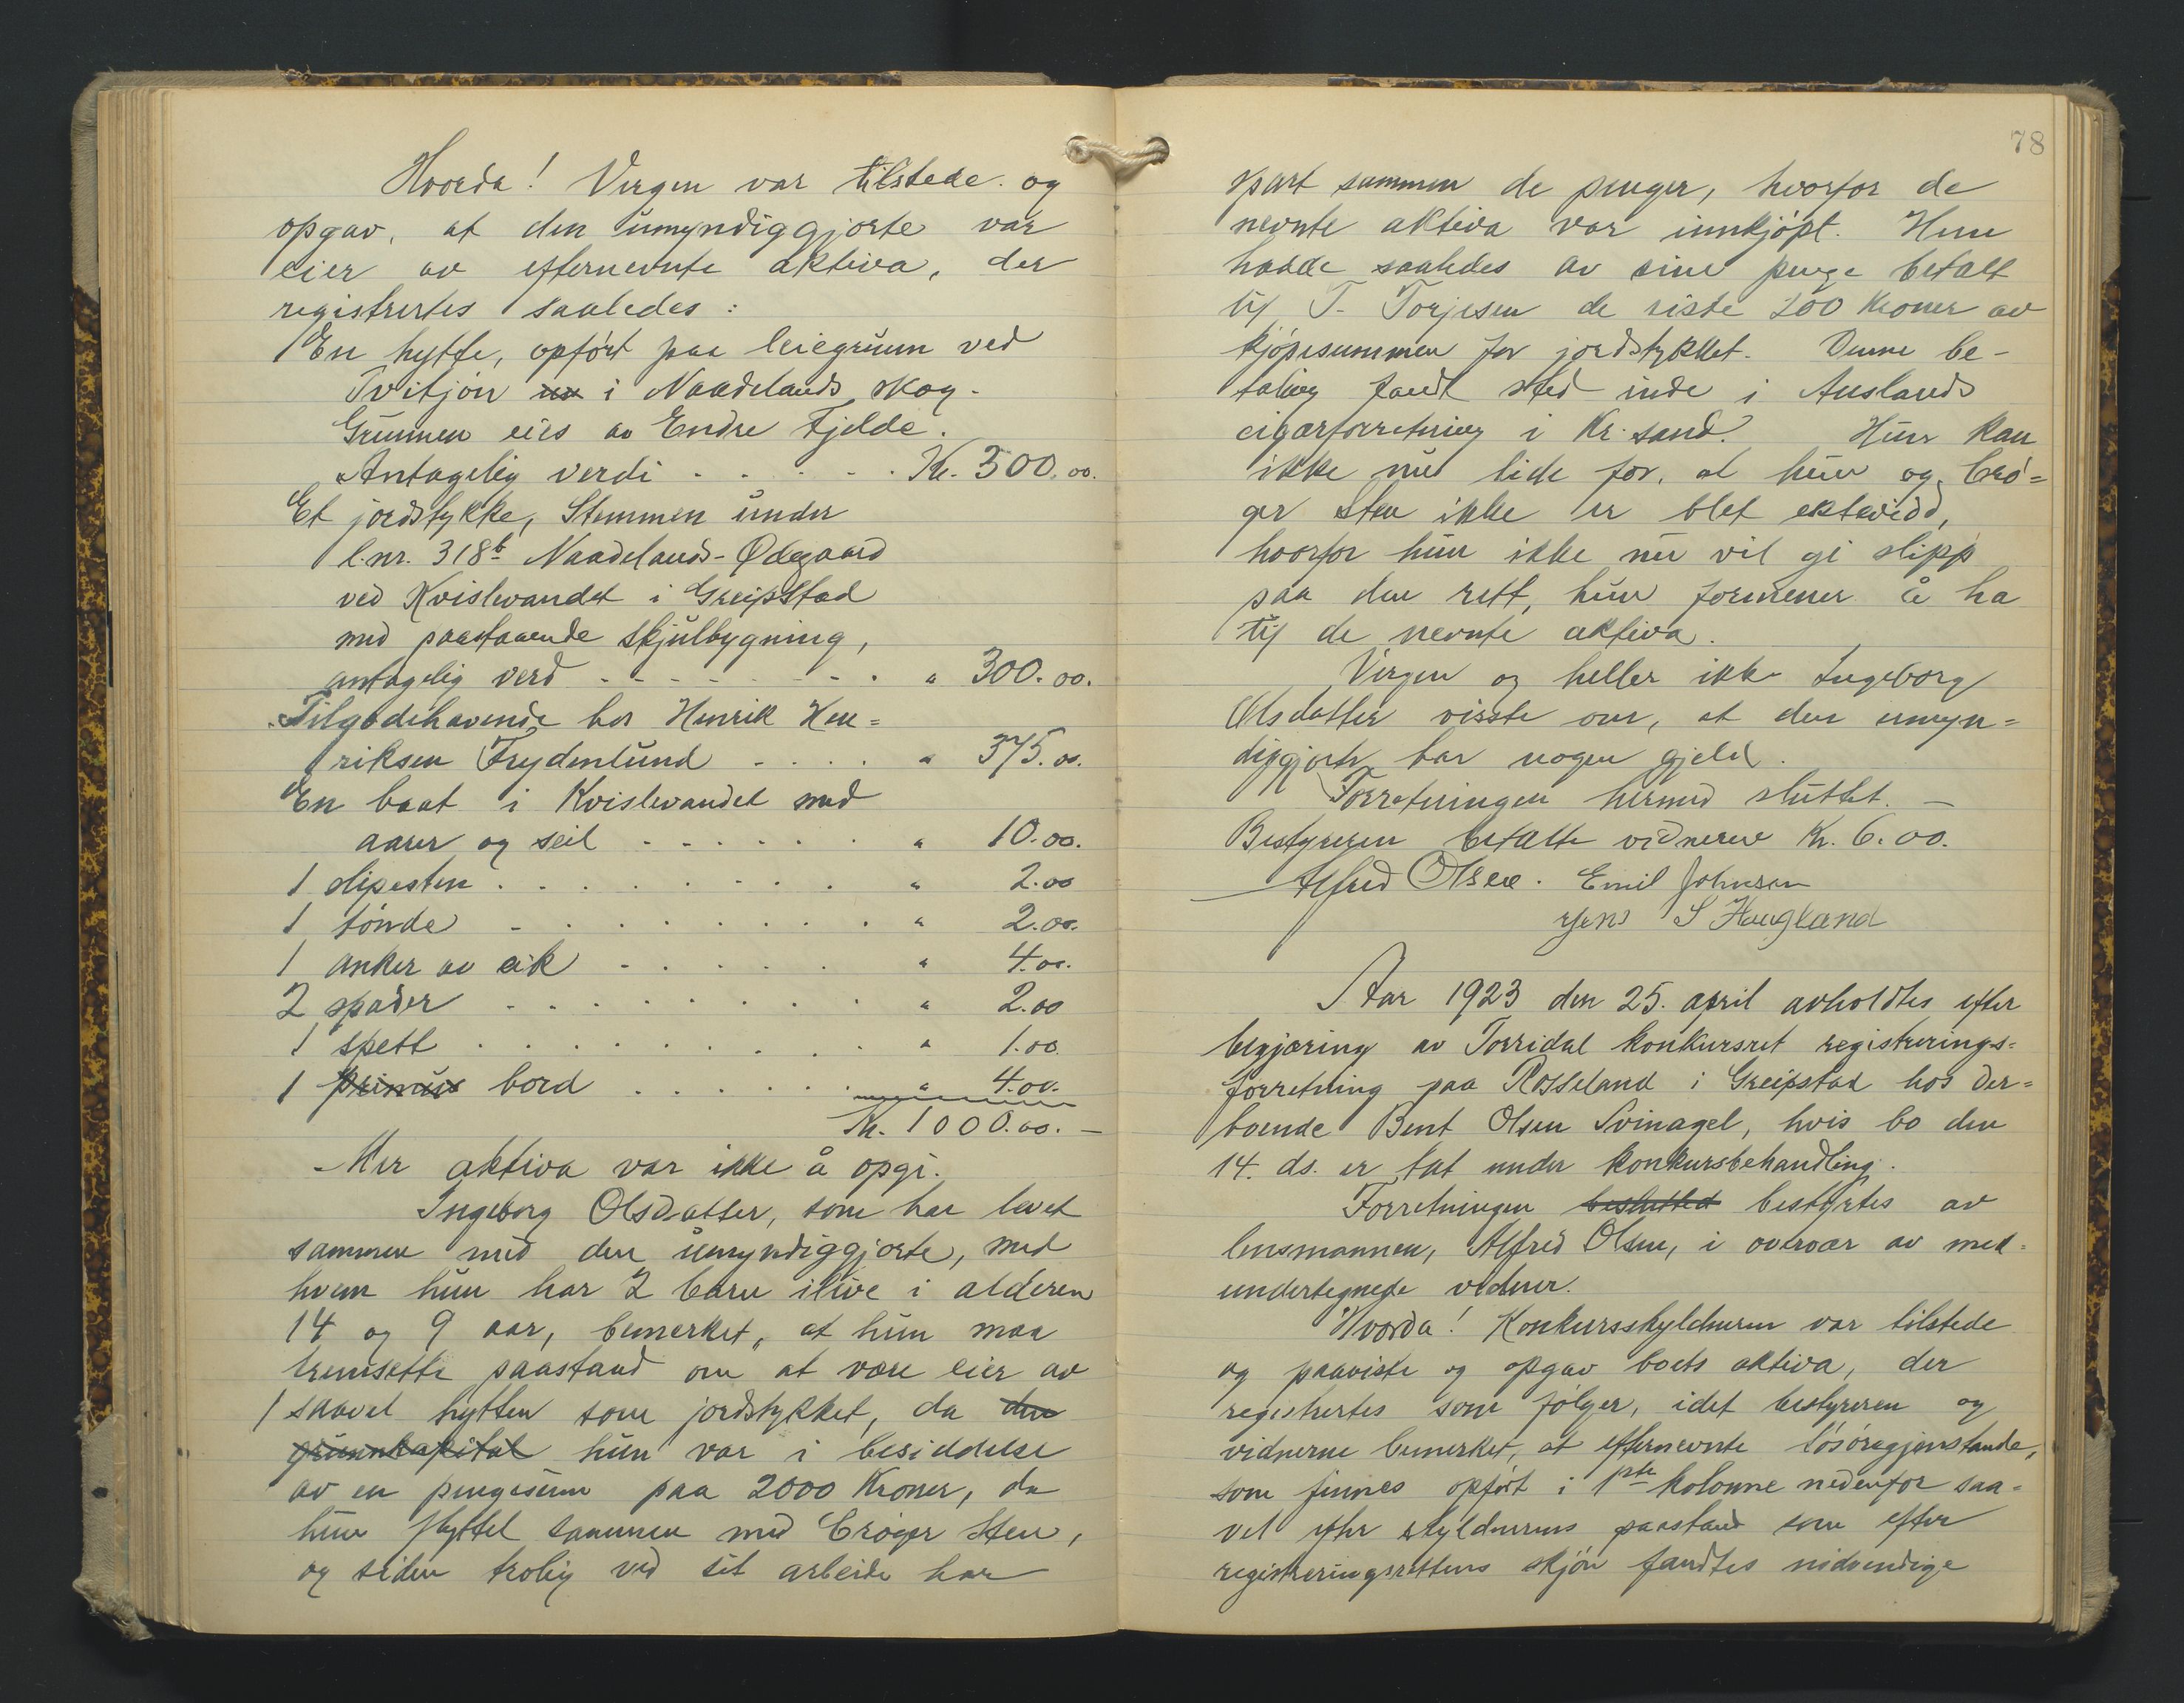 Hvorda! Vergen var tilstede og
opgav, at den umyndiggjorte var
eier av efternevnte aktiva, der
registrertes saaledes:
En hytte, opført paa leiegrunn ved
Tvitjøn i Naadelands skog.
Grunnen eies av Endre Fjelde.
Antagelig verdi - - - - - Kr. 300.00.
Et jordstykke, Stemmen under
l.nr. 318b Naadelands-Ødegaard
ved Kvislevandet i Greipstad
med paastaaende skjulbygning,
antagelig verd - - - - - - - " 300.00.
Tilgodehavende hos Henrik Hen=
riksen Frydenlund - - - - " 375.00.
En baat i Kvislevandet med
aarer og seil - - - - - - " 10.00.
1 slipesten . . . . . . . . " 2.00
1 tønde - . . . . . . . . " 2.00.
1 anker av eik - . . . . . " 4.00.
2 spader - . . . . . . . " 2.00
1 spett . . . . . . . . . " 1.00.
1 primus bord . . . . . . " 4.00.
Kr. 1000.00. -
Mer aktiva var ikke å opgi.
Ingeborg Olsdatter, som har levet
sammen med den umyndiggjorte, med
hvem hun har 2 barn ilive i alderen
14 og 9 aar, bemerket, at hun maa
fremsette paastand om at være eier av
saavel hytten som jordstykket, da den
grunnkapital hun var i besiddelse
av en pengesum paa 2000 Kroner, da
hun flyttet sammen med Brøger Sten,
og siden trolig ved sit arbeide har
78
spart sammen de penger, hvorfor de
nevnte aktiva var innkjøpt. Hun
hadde saaledes av sine penge betalt
til T. Torjesen de siste 200 Kroner av
kjøpesummen for jordstykket. Denne be-
taling fandt sted inde i Auslands
cigarforretning i Kr.sand. Hun kan
ikke nu lide for, at hun og Brø=
ger Sten ikke er blet ektevidd,
hvorfor hun ikke nu vil gi slipp
paa den rett, hun formener å ha
til de nevnte aktiva.
Vergen og heller ikke Ingeborg
Olsdatter visste om, at den umyn=
diggjorte har nogen gjeld.
Forretningen hermed sluttet. -
Bestyreren betalte vidnerne Kr. 6.00.
Alfred Olsen. Emil Johnsen
Jens S Haugland
Aar 1923 den 25. april avholdtes efter
begjæring av Torridal konkursret registrerings=
forretning paa Rosseland i Greipstad hos der=
boende Bent Olsen Svinagel, hvis bo den
14. ds. er tat under konkursbehandling.
Forretningen beslutted bestyrtes av
lensmannen, Alfred Olsen, i overvær av med=
undertegnede vidner.
Hvorda! Konkursskyldneren var tilstede
og paaviste og opgav boets aktiva, der
registrertes som følger, idet bestyreren og
vidnerne bemerket, at efternevnte løsøregjenstande,
som finnes opført i 1ste kolonne nedenfor saa=
vel efter skyldnerens paastand som efter
registreringsrettens skjøn fandtes nødvendige